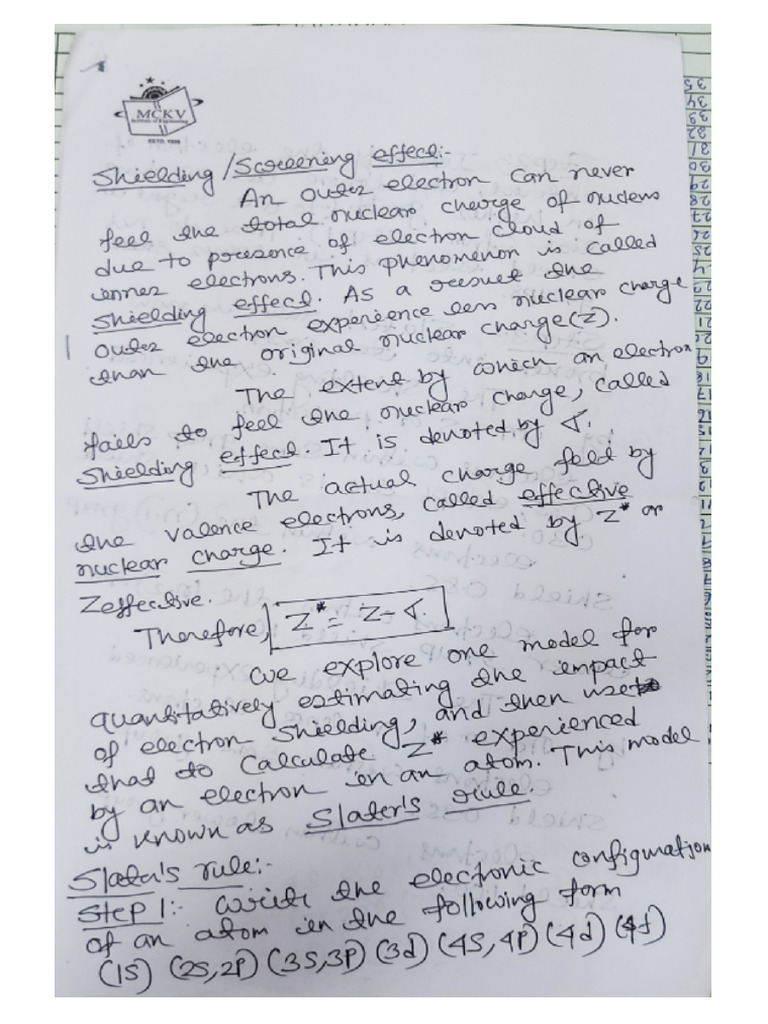 MCKV
Institute of Engineering
ESTD. 1999
Shielding / Screening effect:-
An outer electron can never
feel the total nuclear charge of nucleus
due to presence of electron cloud of
inner electrons. This phenomenon is called
Shielding effect. As a result the
outer electron experience less nuclear charge
than the original nuclear charge (Z).
The extent by which an electron
fails to feel the nuclear charge, called
Shielding effect. It is denoted by σ.
The actual charge feel by
the valence electrons, called effective
nuclear charge. It is denoted by Z* or
Zeffective.
Therefore, Z* = Z - σ.
We explore one model for
quantitatively estimating the impact
of electron shielding, and then use
that to calculate Z* experienced
by an electron in an atom. This model
is known as Slater's rule.
Slater's rule:-
Step 1:- Write the electronic configuration
of an atom in the following form
(1S) (2S, 2P) (3S, 3P) (3d) (4S, 4P) (4d) (4f)